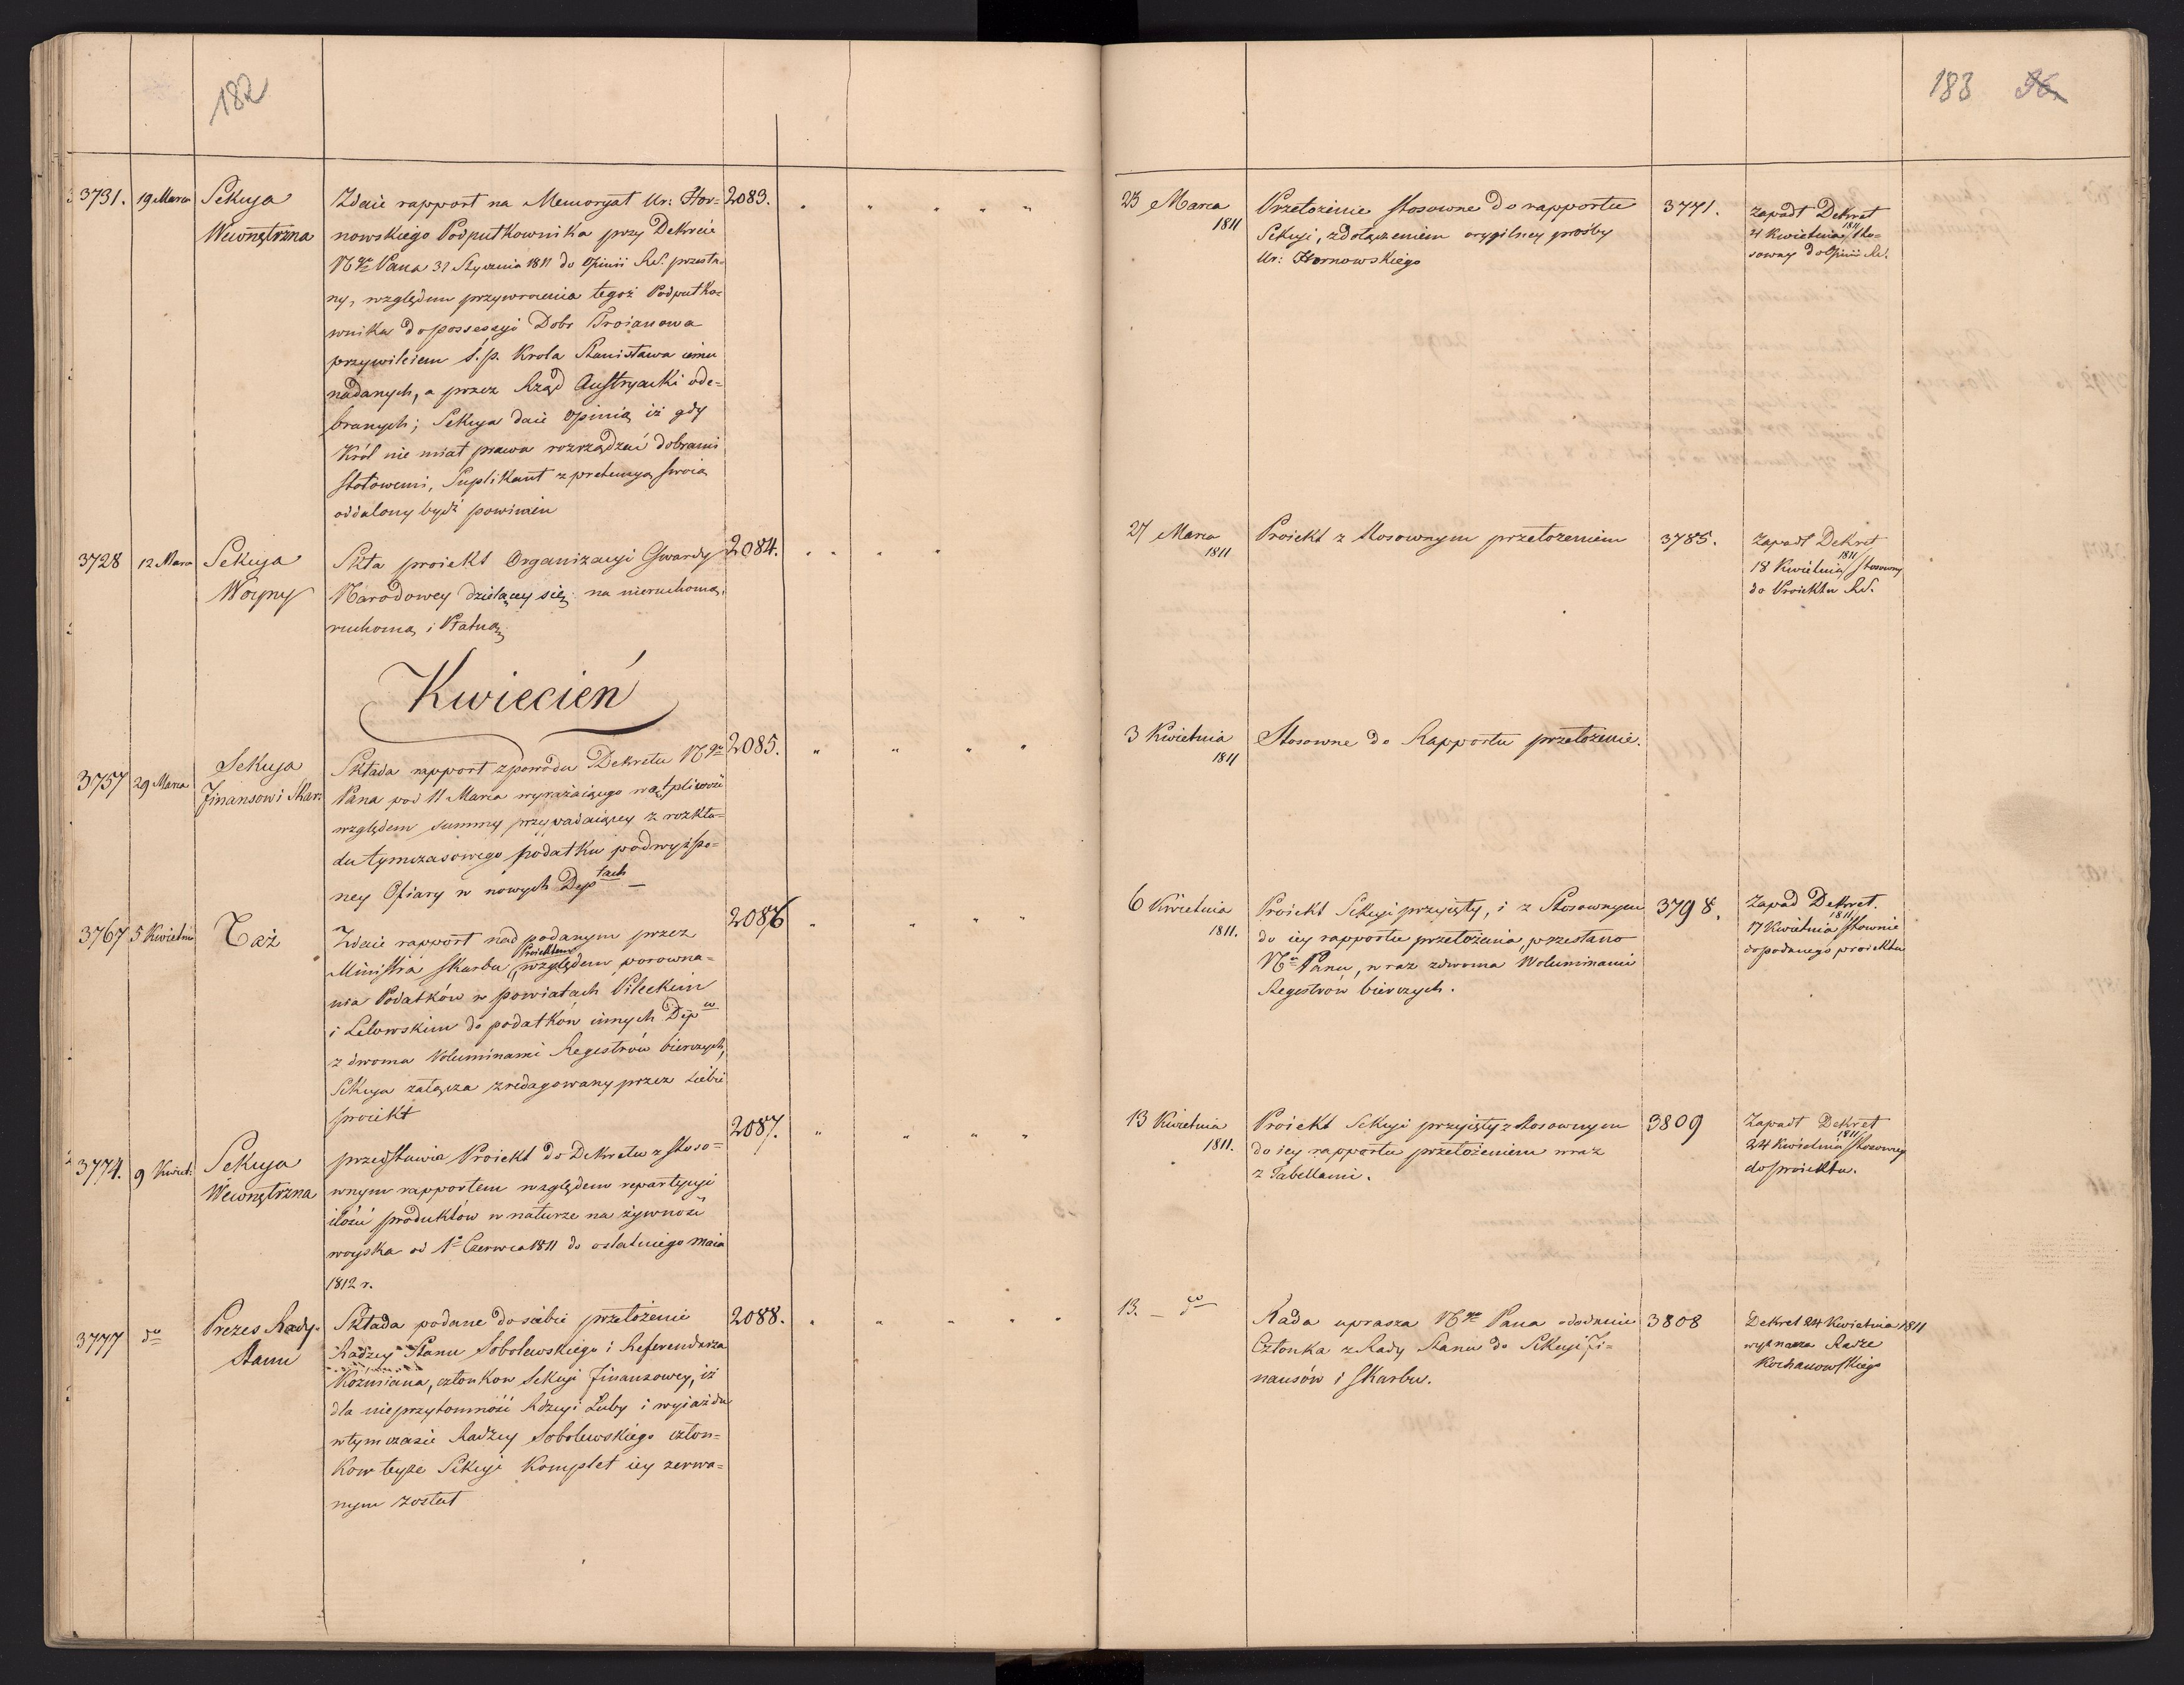 182
3731. 19 Marca Sekcya Zdaie rapport na Memoryał Ur: Hor= 2083.
Wewnętrzna nowskiego Podpułkownika przy Dekrecie
Nego Pana 31 Stycznia 1811 do Opinii R.S. przesła-
ny, względem przywrocenia tegoż Podpułko=
wnika do possessyi Dobr Troianowa
przywileiem ś. p. Krola Stanisława iemu
nadanych, a przez Rząd Austryacki ode=
branych; Sekcya daie Opinią iż gdy
Król nie miał prawa rozrządzać dobrami
stołowemi, Suplikant z pretensyą swoią
oddalony bydź powinien
3728 12 Marca Sekcya Skła proiekt Organizacyi Gwardy 2084.
Woyny Narodowey dzielącey się na nieruchomą,
ruchomą i Płatną
Kwiecień
3757 29 Marca Sekcya Składa rapport z powodu Dekretu Nego 2085.
Finansow i Skar: Pana pod 11 Marca wyrażaiącego wątpliwość
względem summy przypadaiącey z rozkła=
du tymczasowego podatku podwyższo=
ney Ofiary w nowych Deptach —
3767 5 Kwietnia Taż Zdaie rapport nad podanym przez 2086
Proiektem
Ministra Skarbu względem porowna=
nia Podatków w powiatach Pileckim
i Lelowskim do podatków innych Depów
z dwoma Voluminami Regestrów bierczych,
Sekcya załącza zredagowany przez siebie
proiekt
3774. 9 Kwiet: Sekcya przedstawia Proiekt do Dekretu z stoso= 2087.
Wewnętrzna wnym rapportem względem repartycyi
ilości produktów w naturze na żywność
woyska od 1o Czerwca 1811 do ostatniego maia
1812 r.
3777 do Prezes Rady Składa podane do siebie przełożenie 2088.
Stanu Radzcy Stanu Sobolewskiego i Referendarza
Koźmiana, członkow Sekcyi Finansowey, iż
dla nieprzytomności Radzcy Łuby i wyiazdu
w tym czasie Radzcy Sobolewskiego człon=
kow teyże Sekcyi Komplet iey zerwa=
nym został
183 96.
23 Marca Przełożenie stosowne do rapportu 3771. zapadł Dekret
1811 Sekcyi, z dołączeniem orygilney prośby 4 Kwietnia 1811 sto=
Ur: Hornowskiego sowny do Opinii R.S.
27 Marca Proiekt z stosownym przełożeniem 3785. Zapadł Dekret
1811 18 Kwietnia 1811 stosowny
do Proiektu R.S.
3 Kwietnia Stosowne do Rapportu przełożenie.
1811
6 Kwietnia Proiekt Sekcyi przyięty, i z Stosownym 3798. Zapad Dekret.
1811. do iey rapportu przełożenia, przesłano 17 Kwietnia 1811 stownie
Nu Panu, wraz z dwoma Woluminami do podanego proiektu
Regestrów bierczych.
13 Kwietnia Proiekt Sekcyi przyięty z stosownym 3809 Zapadł Dekret
1811. do iey rapportu przełożeniem wraz 24 Kwietnia 1811 stosowny
z Tabellami. do proiektu.
13. — do Rada uprasza Nego Pana o dodanie 3808 Dekret 24 Kwietnia 1811
Członka z Rady Stanu do Sekcyi Fi= wyznacza Radzcę
nansów i Skarbu. Kochanowskiego